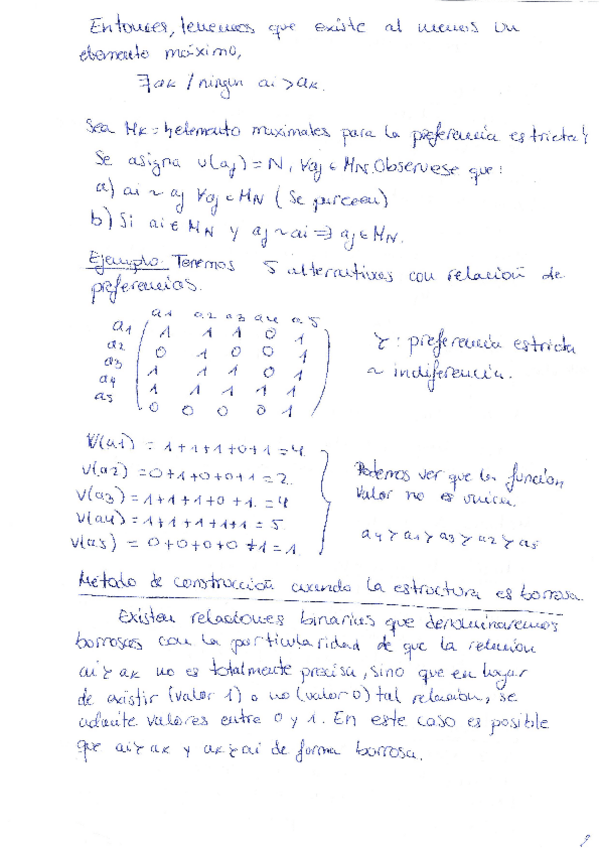 Entonces, tenemos que existe al menos un
elemento máximo,
∃ak / ningun ai > ak.
Sea Mk = {elemento maximales para la preferencia estricta}
Se asigna v(aj) = N, ∀aj ∈ MN. Observese que:
a) ai ~ aj ∀aj ∈ MN (Se parecen)
b) Si ai ∈ MN y aj ~ ai ⇒ aj ∈ MN.
Ejemplo: Tenemos 5 alternativas con relación de
preferencias.
a1 a2 a3 a4 a5
a1 1 1 1 0 1
a2 0 1 0 0 1
a3 1 1 1 0 1
a4 1 1 1 1 1
a5 0 0 0 0 1
≻: preferencia estricta
~ indiferencia.
V(a1) = 1+1+1+0+1 = 4.
v(a2) = 0+1+0+0+1 = 2.
v(a3) = 1+1+1+0+1. = 4
v(a4) = 1+1+1+1+1 = 5
v(a5) = 0+0+0+0+1 = 1.
Podemos ver que la función
valor no es única.
a4 ≻ a1 ≻ a3 ≻ a2 ≻ a5
Método de construcción cuando la estructura es borrosa.
Existen relaciones binarias que denominaremos
borrosas con la particularidad de que la relación
ai ≿ ak no es totalmente precisa, sino que en lugar
de existir (valor 1) o no (valor 0) tal relación, se
admite valores entre 0 y 1. En este caso es posible
que ai ≿ ak y ak ≿ ai de forma borrosa.